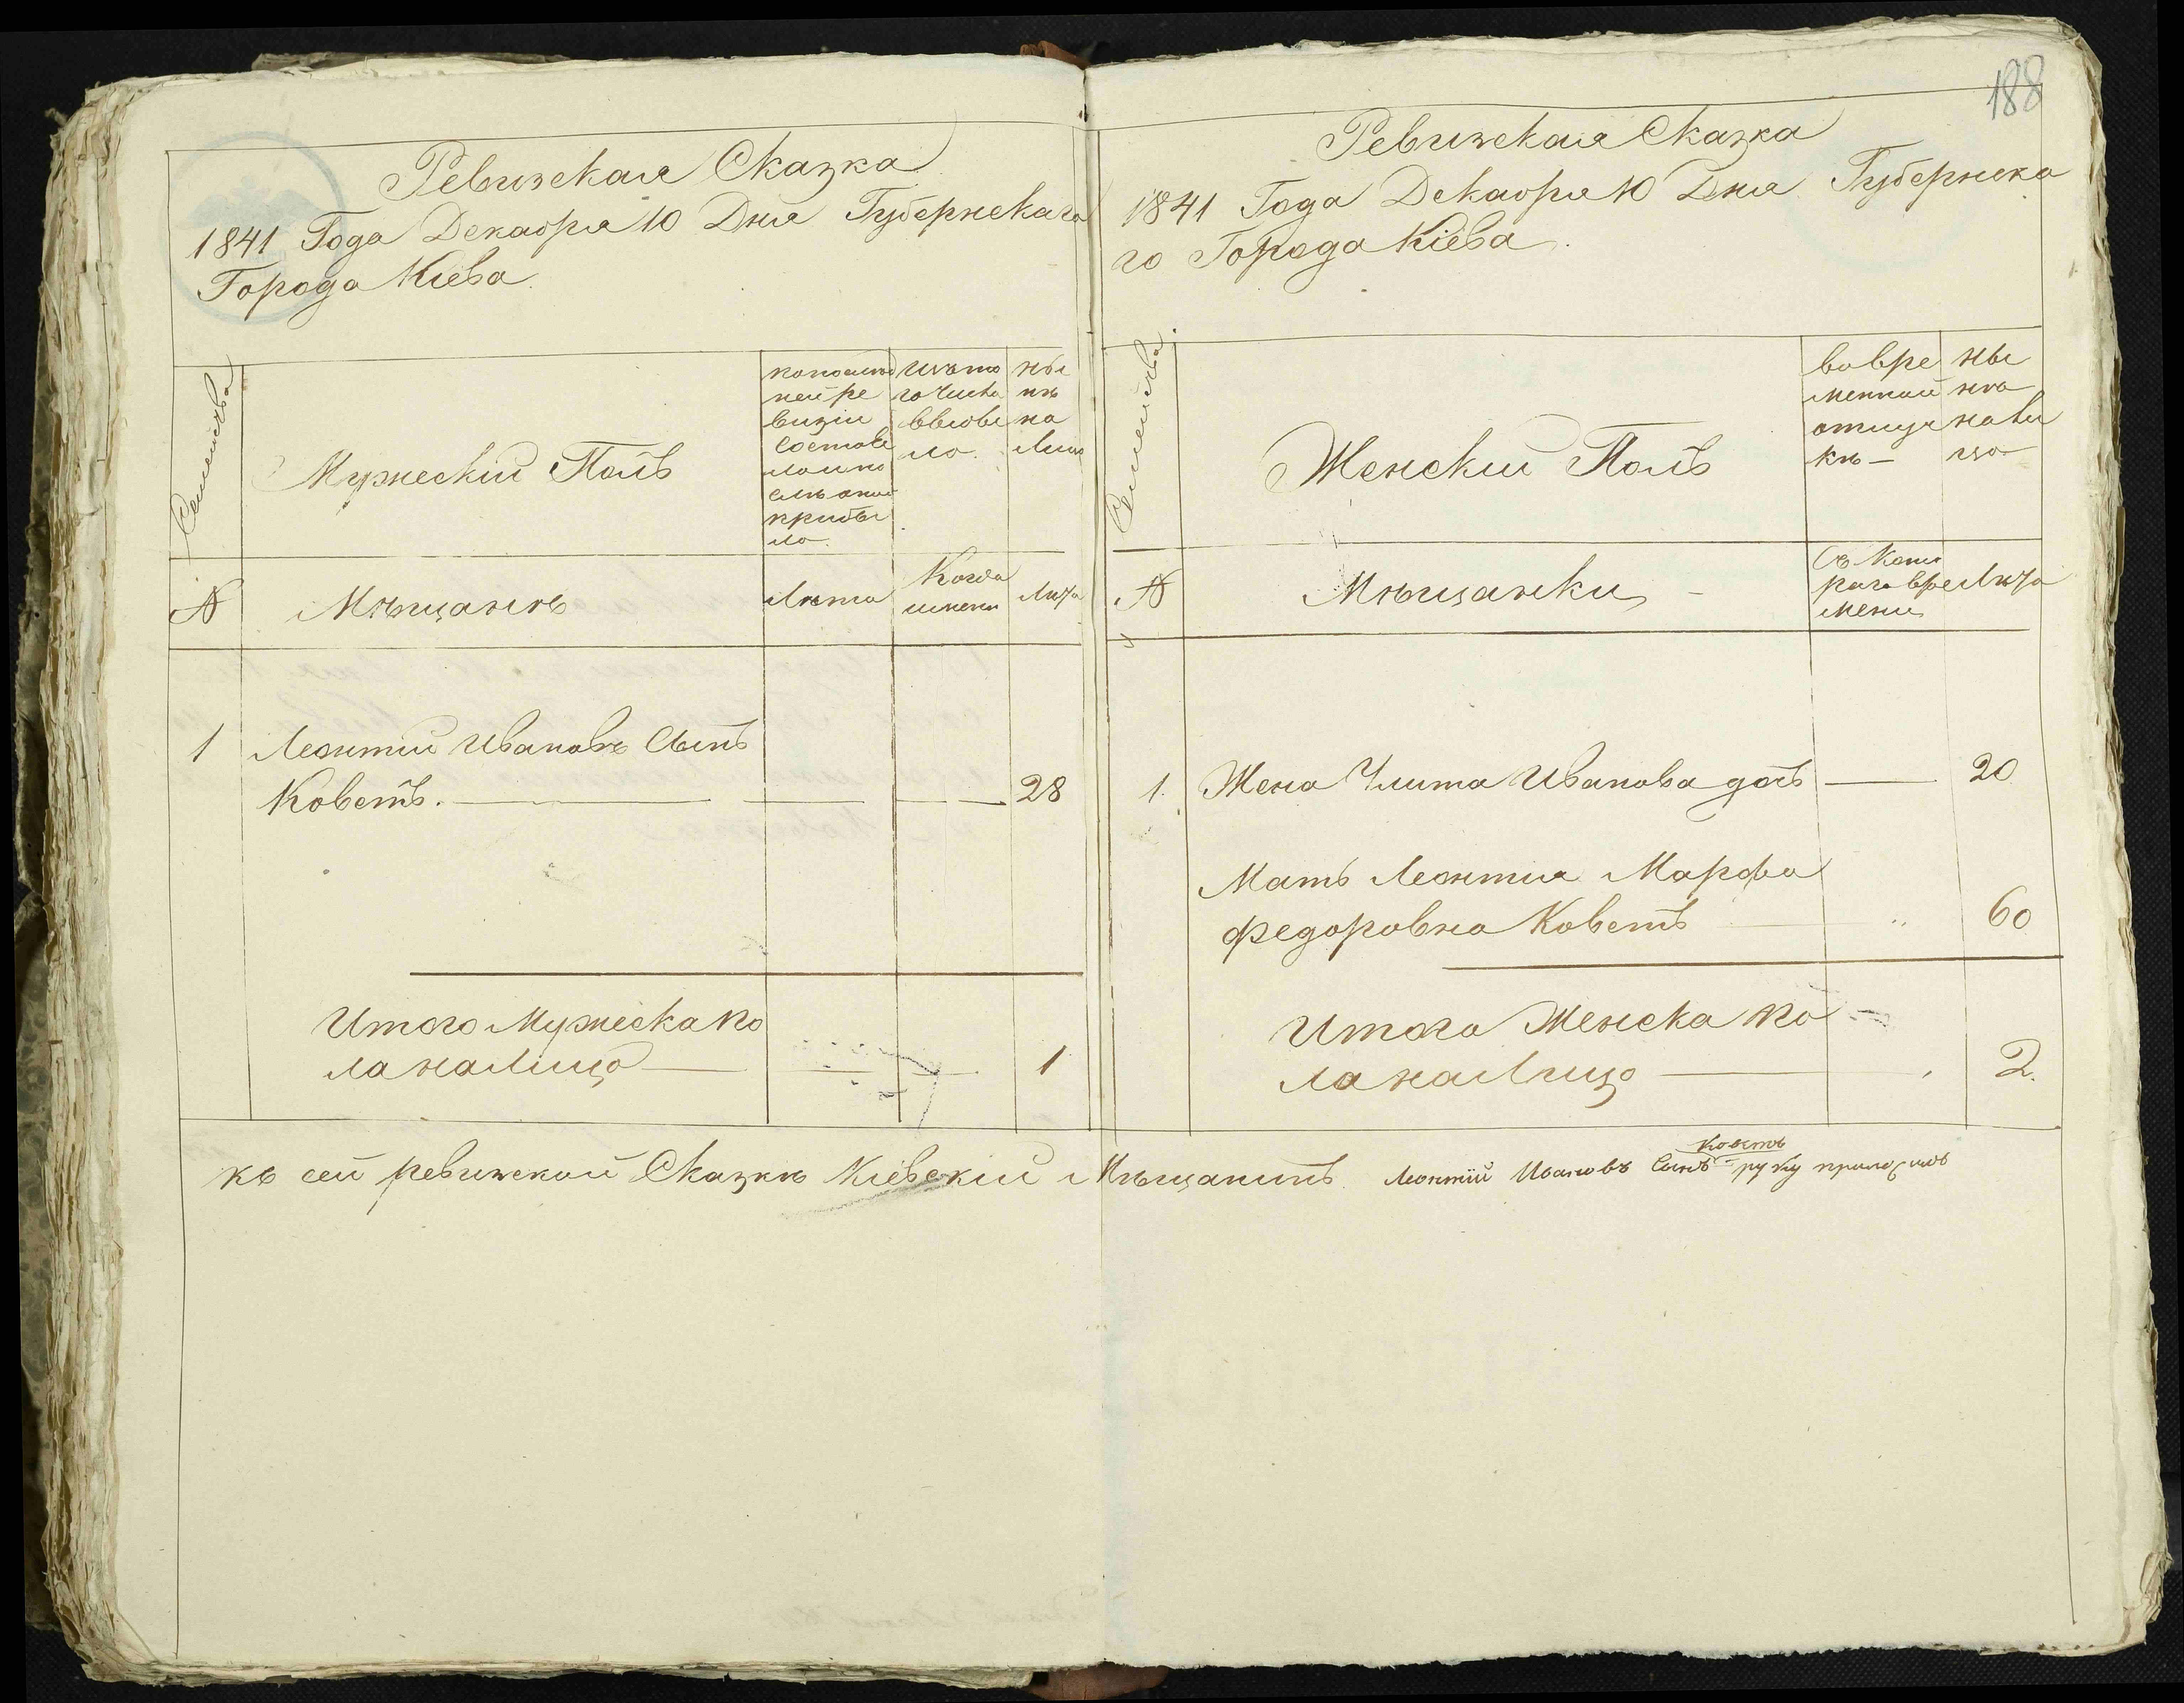 188
Ревизская Сказка
1841 Года Декабря 10 Дня Губернскаго
Города Кіева
Семейства
Мужескій Полъ
по послед
ней ре
визіи
состоя
ло и по
слѣ оной
прибы
ло
изъ то
го числа
выбы
ло.
ны
нѣ
на
лицо
№
Мѣщанъ
Лѣта
Когда
именно
Лѣта
1
Леонтій Ивановъ Сынъ
Коветъ.
28
Итого Мужеска по
ла на Лицо
1
Ревизская Сказка
1841 Года Декабря 10 Дня Губернска
го Города Кіева
Семейства
Женскій Полъ
во вре
менной
отлуч
кѣ
ны
нѣ
на ли
цо
№
Мѣщанки
Съ Кото
раго вре
мени
Лѣта
1. Жена Улита Иванова дочь
20
Мать Леонтія Марфа
Федоровна Коветъ
60
Итого Женска по
ла на Лицо
2.
къ сей ревизской Сказкѣ Кіевскій Мѣщанинъ Леонтій Ивановъ Сынъ Коветъ руку приложилъ